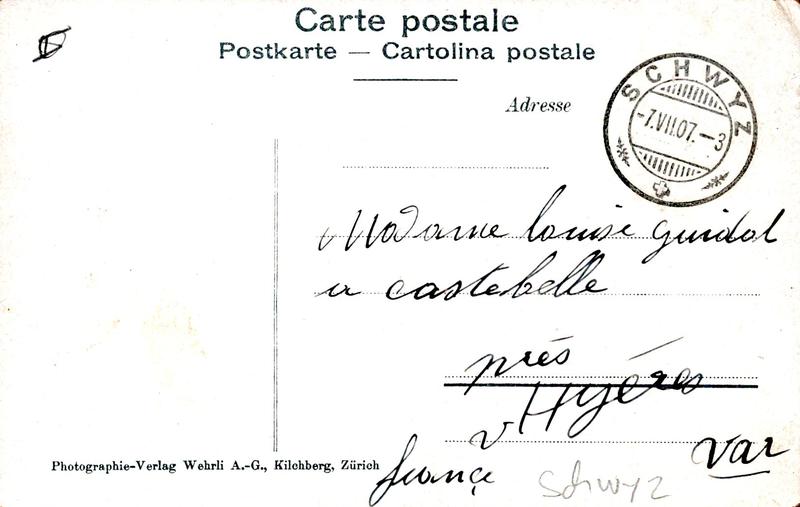 Carte postale
Postkarte — Cartolina postale
Adresse
SCHWYZ
-7.VII.07.-3
Madame louise guidal
a castebelle
près
Hyéres
Var
france
Schwyz
Photographie-Verlag Wehrli A.-G., Kilchberg, Zürich